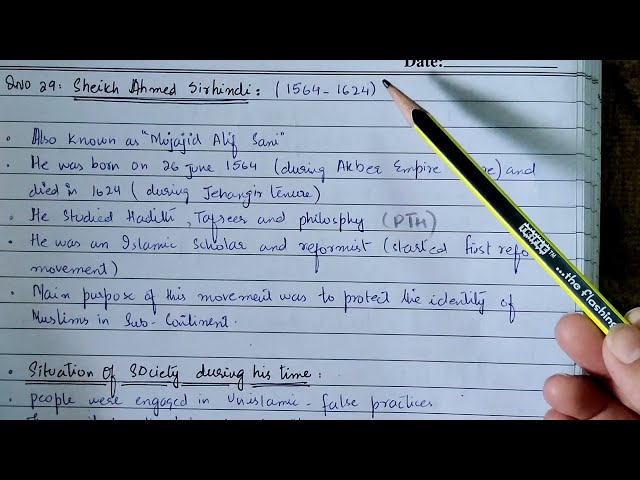 Date:
QNO 29: Sheikh Ahmed Sirhindi: (1564-1624)
• Also known as "Mujajid Alif Sani"
• He was born on 26 June 1564 (during Akber Empire and
died in 1624 (during Jehangir tenure)
• He studied Hadith, Tafseer and philosphy (PTH)
• He was an Islamic Scholar and reformist (started first refo
movement)
• Main purpose of this movement was to protect the identity of
Muslims in Sub-Continent.
• Situation of Society during his time:
• people were engaged in Unislamic - false practices
...the flashing